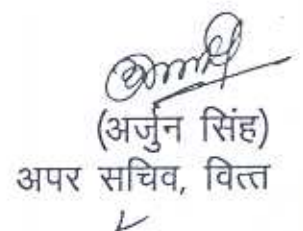 (अर्जुन सिंह)
अपर सचिव, वित्त